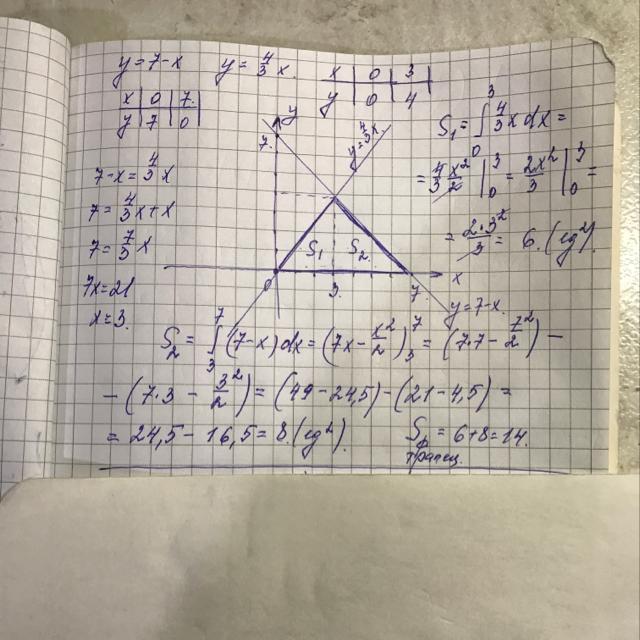 y=7-x y=4/3 x. x | 0 | 3 |
y | 0 | 4 |
x | 0 | 7
y | 7 | 0
7-x=4/3 x
7=4/3 x+x
7=7/3 x
7x=21
x=3.
y
7
y=4/3 x.
S₁ S₂
0 3. 7 x
y=7-x.
S₁=∫₀³ 4/3 x dx=
=4/3 x²/2 |₀³ = 2x²/3 |₀³ =
= 2·3²/3 = 6. (ед²).
S₂ = ∫₃⁷ (7-x)dx=(7x-x²/2)₃⁷ = (7·7-7²/2) -
-(7·3 - 3²/2)=(49-24,5)-(21-4,5)=
= 24,5-16,5=8.(ед²). Sф = 6+8=14.
трапец.